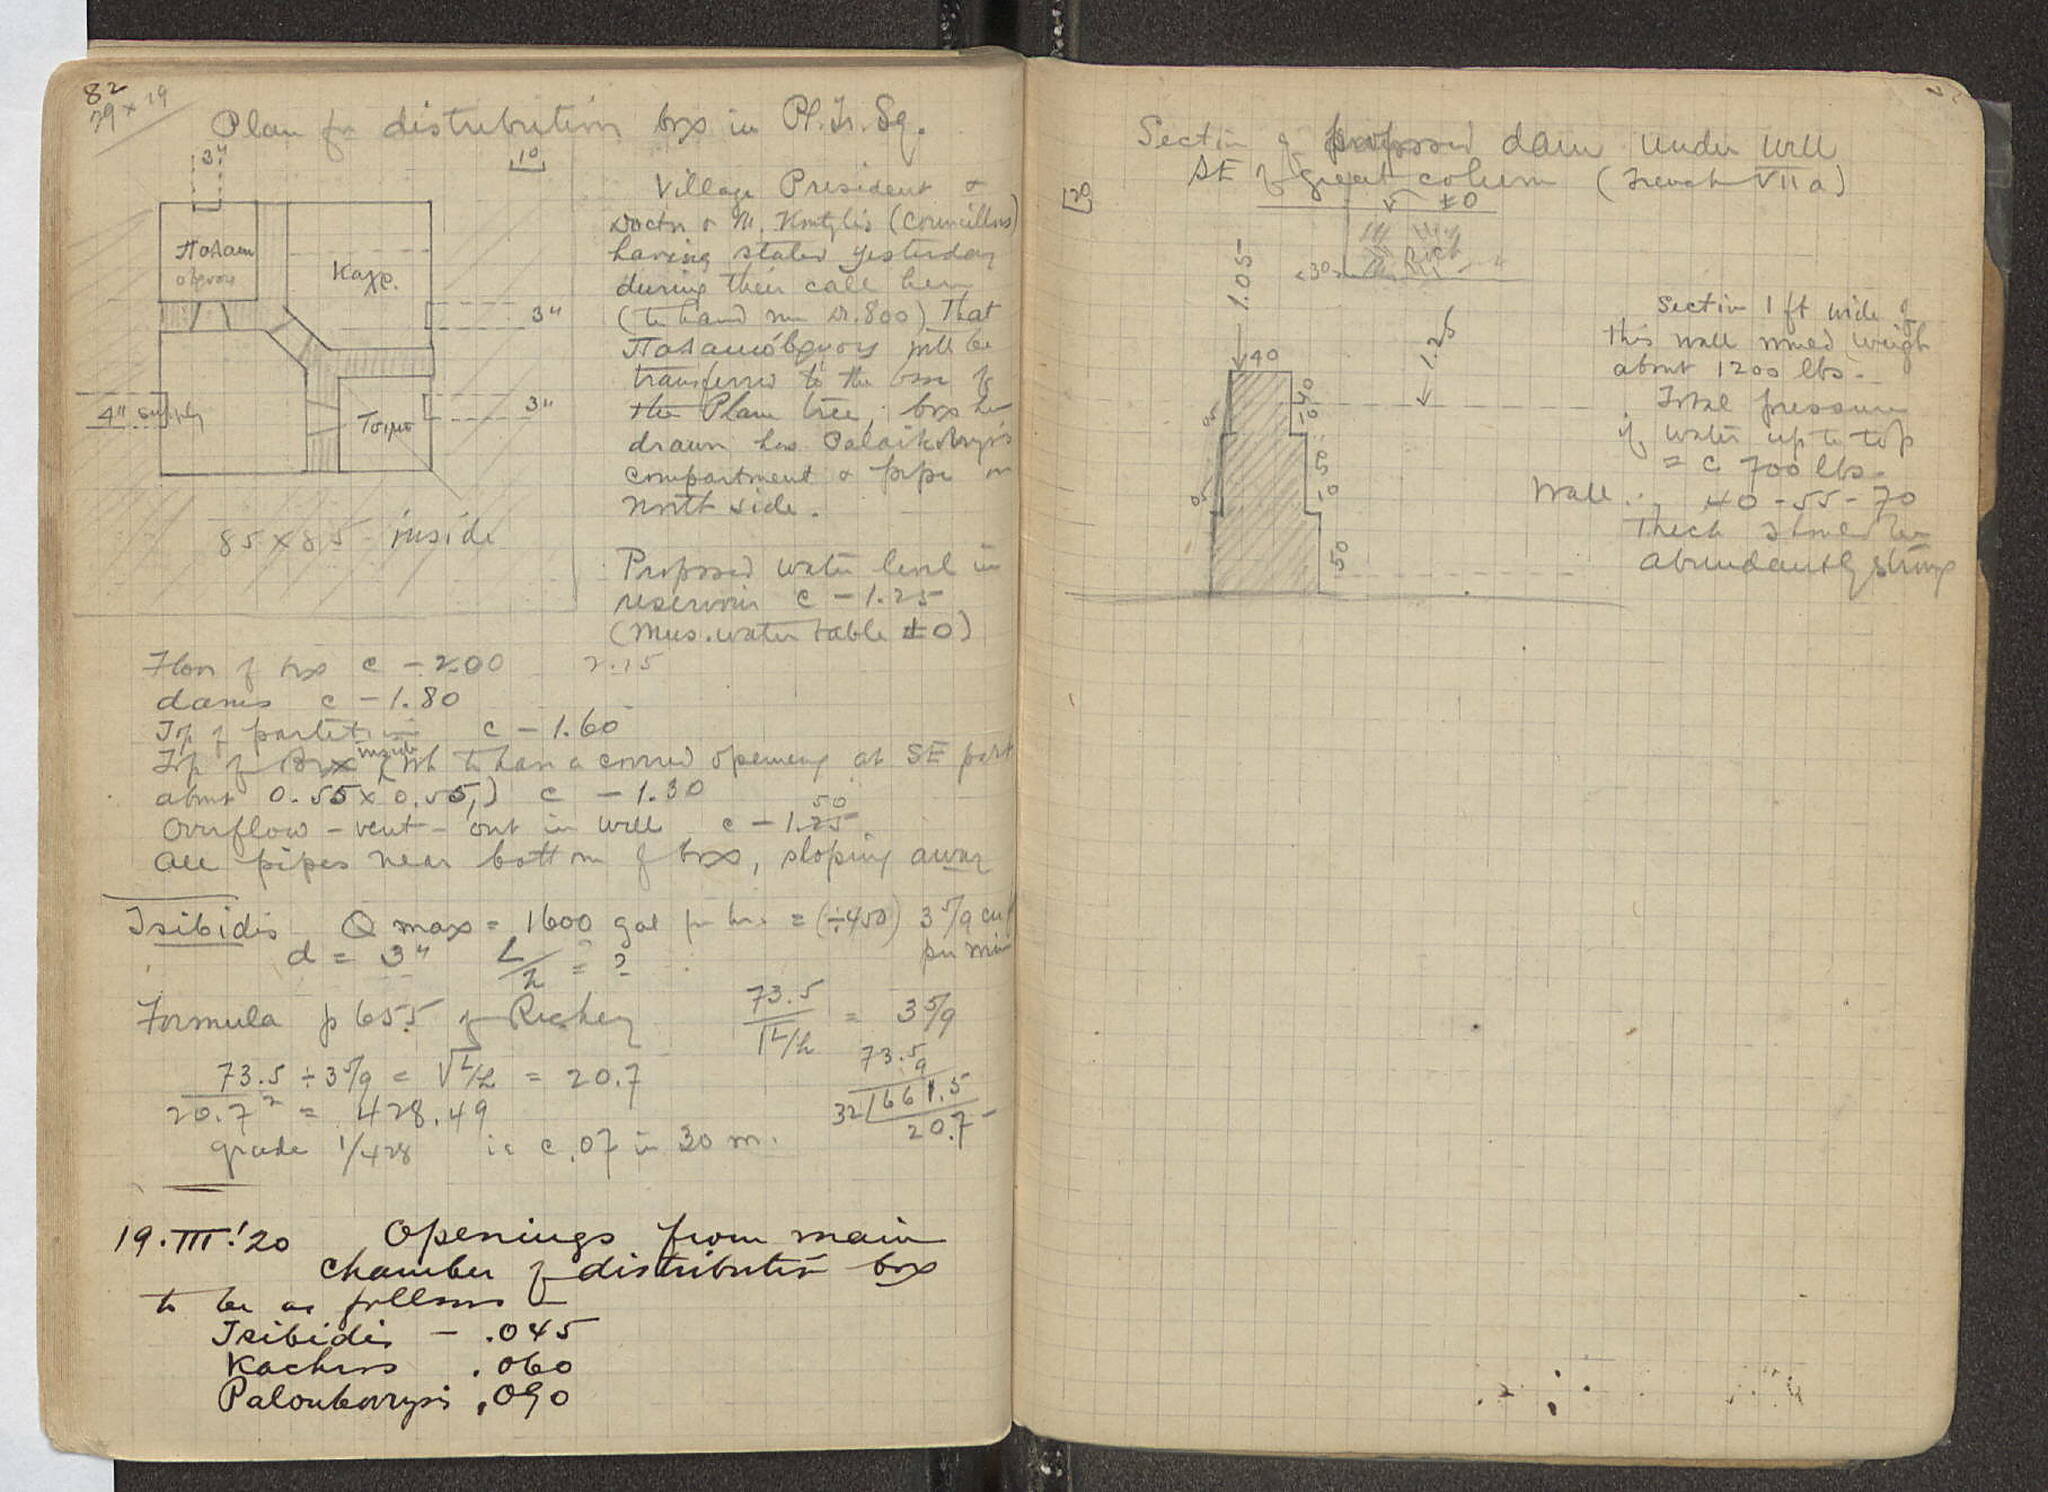 82
29 × 19
Plan for distribution box in Pl. Tr. Sq.
3"
10
Παλαιο
βρυσις
Καχρ.
3"
3"
4" supply
Τσιμπ
85 × 85 inside
Village President &
Doctor & M. (Councillors)
having stated yesterday
during their call here
(to hand me Dr. 800) That
Παλαιόβρυσις will be
transferred to the base of
the Plane tree; box here
drawn has Palaiobrysis
compartment & pipe on
north side.
Proposed water level in
reservoir c - 1.25
(Mus. water table ±0)
Floor of box c - 2.00 2.15
dams c - 1.80
Top of partition c - 1.60
Top of Box inside (wh to have a covered opening at SE part
about 0.55 × 0.55,) c - 1.30
Overflow - vent - out in well c - 1.25 50
All pipes near bottom of box, sloping away
Tsibidis Q max = 1600 gal per hr. = (÷450) 3 5/9 cu f
per min
d = 3" L/h = ?
Formula p 655 of Richey 73.5/√L/h = 3 5/9
73.5 ÷ 3 5/9 = √L/h = 20.7
20.7² = 428.49
grade 1/428 ie c .07 in 30 m.
73.5
9
32 661.5
20.7
19.III.'20 Openings from main
chamber of distribution box
to be as follows
Tsibidis - .045
Kachros .060
Paloukovrysis .090
Section of proposed dam under well
SE of great column (Trench VII a)
20
±0
Rock
1.05
1.25
40
50
10
50
10
50
05
05
Section 1 ft wide of
this wall would weigh
about 1200 lbs.
Total pressure
if water up to top
= c 700 lbs.
Wall ∴ 40 - 55 - 70
Thick should be
abundantly strong